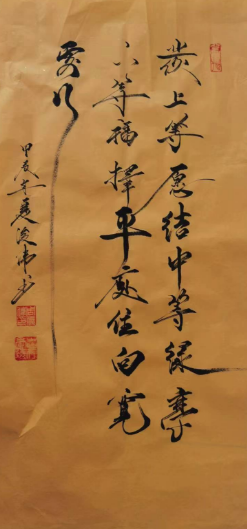 发上等愿结中等缘享
下等福择平处住向宽
处行
甲辰年夏